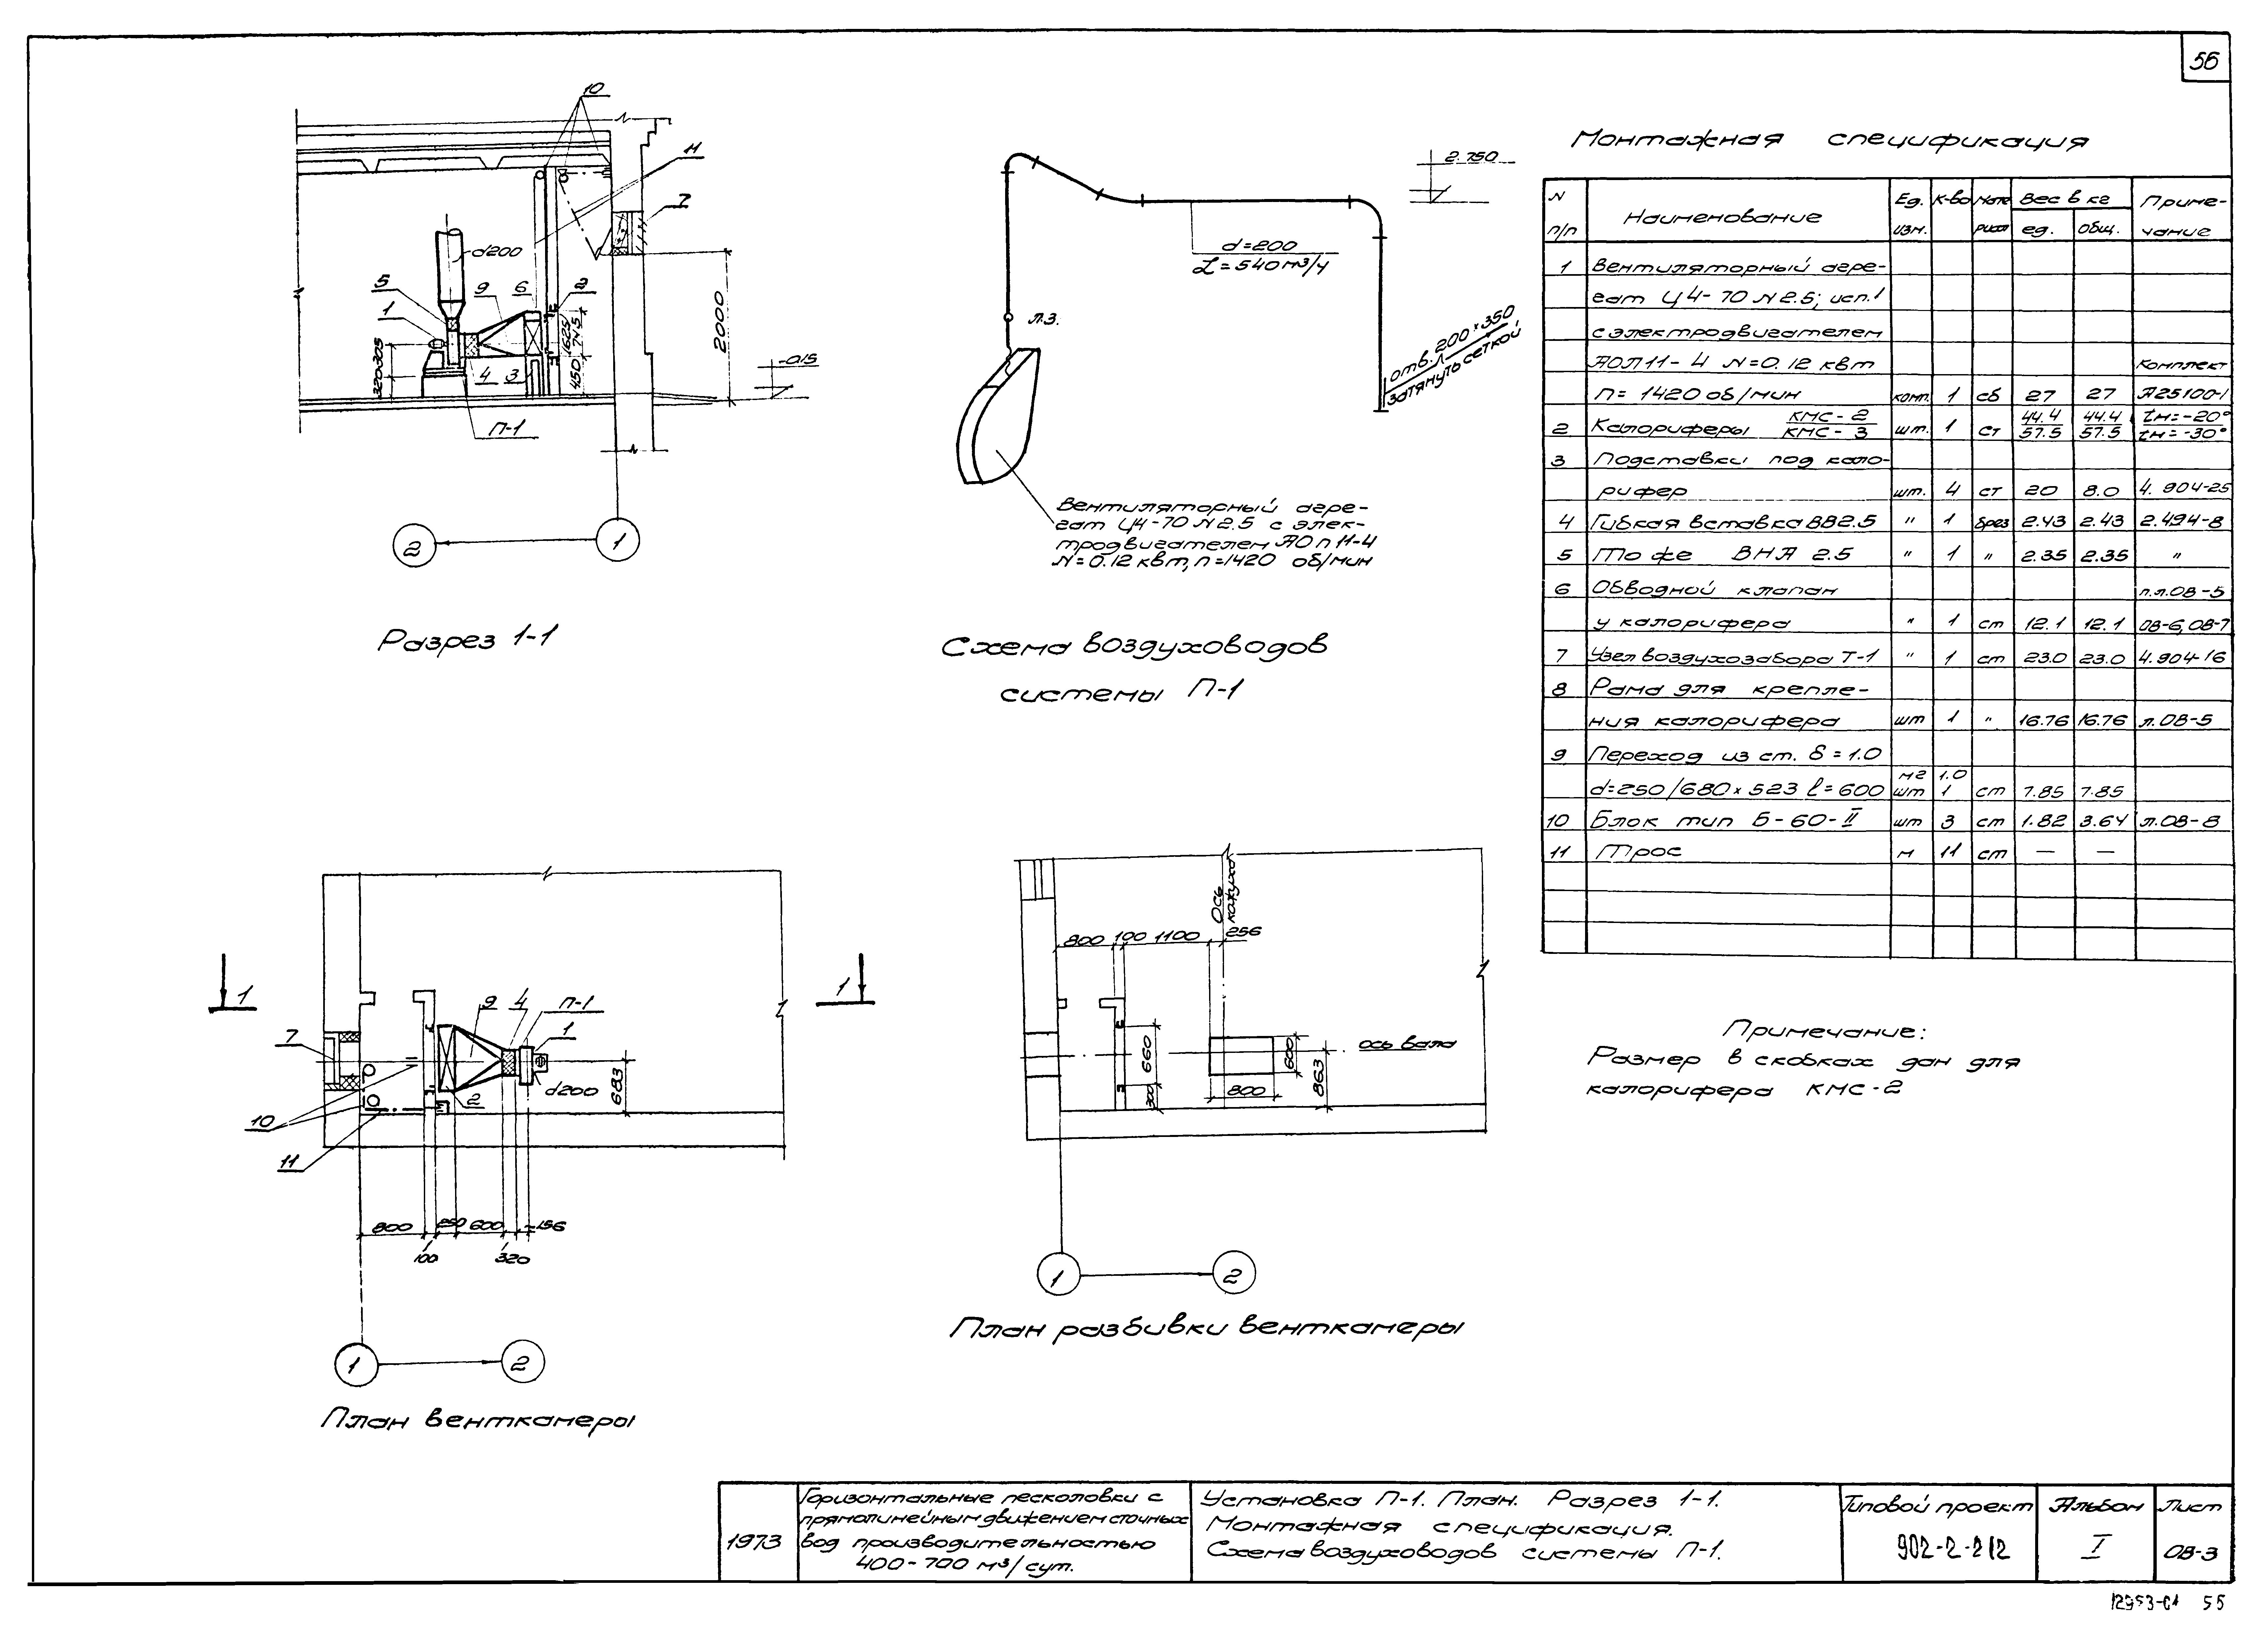 56
10
11
7
d200
5
9
6
2
1
320 305
4 3
450
(625)
745
2000
-0.15
П-1
2
1
Разрез 1-1
2.750
d=200
L=540 м³/ч
л.з.
отв. 200×350
затянуть сеткой
Вентиляторный агре-
гат Ц4-70 N2.5 с элек-
тродвигателем АОЛ 11-4
N=0.12 квт, n=1420 об/мин
Схема воздуховодов
системы П-1
Монтажная спецификация
N п/п Наименование Ед. изм. К-во Мате риал Вес в кг ед. общ. Приме- чание
1 Вентиляторный агре-
гат Ц4-70 N2.5; исп.1
с электродвигателем
АОЛ11-4 N=0.12 квт Комплект
n=1420 об/мин комп. 1 сб 27 27 А25100-1
2 Калориферы КМС-2 / КМС-3 шт. 1 ст 44.4 / 57.5 44.4 / 57.5 tн=-20° / tн=-30°
3 Подставки под кало-
рифер шт. 4 ст 20 8.0 4.904-25
4 Гибкая вставка ВВ2.5 " 1 брез 2.43 2.43 2.494-8
5 То же ВНА 2.5 " 1 " 2.35 2.35 "
6 Обводной клапан п.л.ОВ-5
у калорифера " 1 ст 12.1 12.1 ОВ-6, ОВ-7
7 Узел воздухозабора Т-1 " 1 ст 23.0 23.0 4.904-16
8 Рама для крепле-
ния калорифера шт 1 " 16.76 16.76 л.ОВ-5
9 Переход из ст. δ=1.0
d=250/680×523 l=600 м2 / шт 1.0 / 1 ст 7.85 7.85
10 Блок тип Б-60-II шт 3 ст 1.82 3.64 л.ОВ-8
11 Трос м 11 ст — —
Примечание:
Размер в скобках дан для
калорифера КМС-2
1
1
9 4 П-1
1
7
2
d200
683
10
11
800 250 600 156
100 320
1
2
План венткамеры
Ось
кожуха
800 100 1100 256
660
300
600
800
863
ось вала
1
2
План разбивки венткамеры
1973
Горизонтальные песколовки с
прямолинейным движением сточных
вод производительностью
400-700 м³/сут.
Установка П-1. План. Разрез 1-1.
Монтажная спецификация.
Схема воздуховодов системы П-1.
Типовой проект
902-2-212
Альбом
I
Лист
ОВ-3
12953-01 55